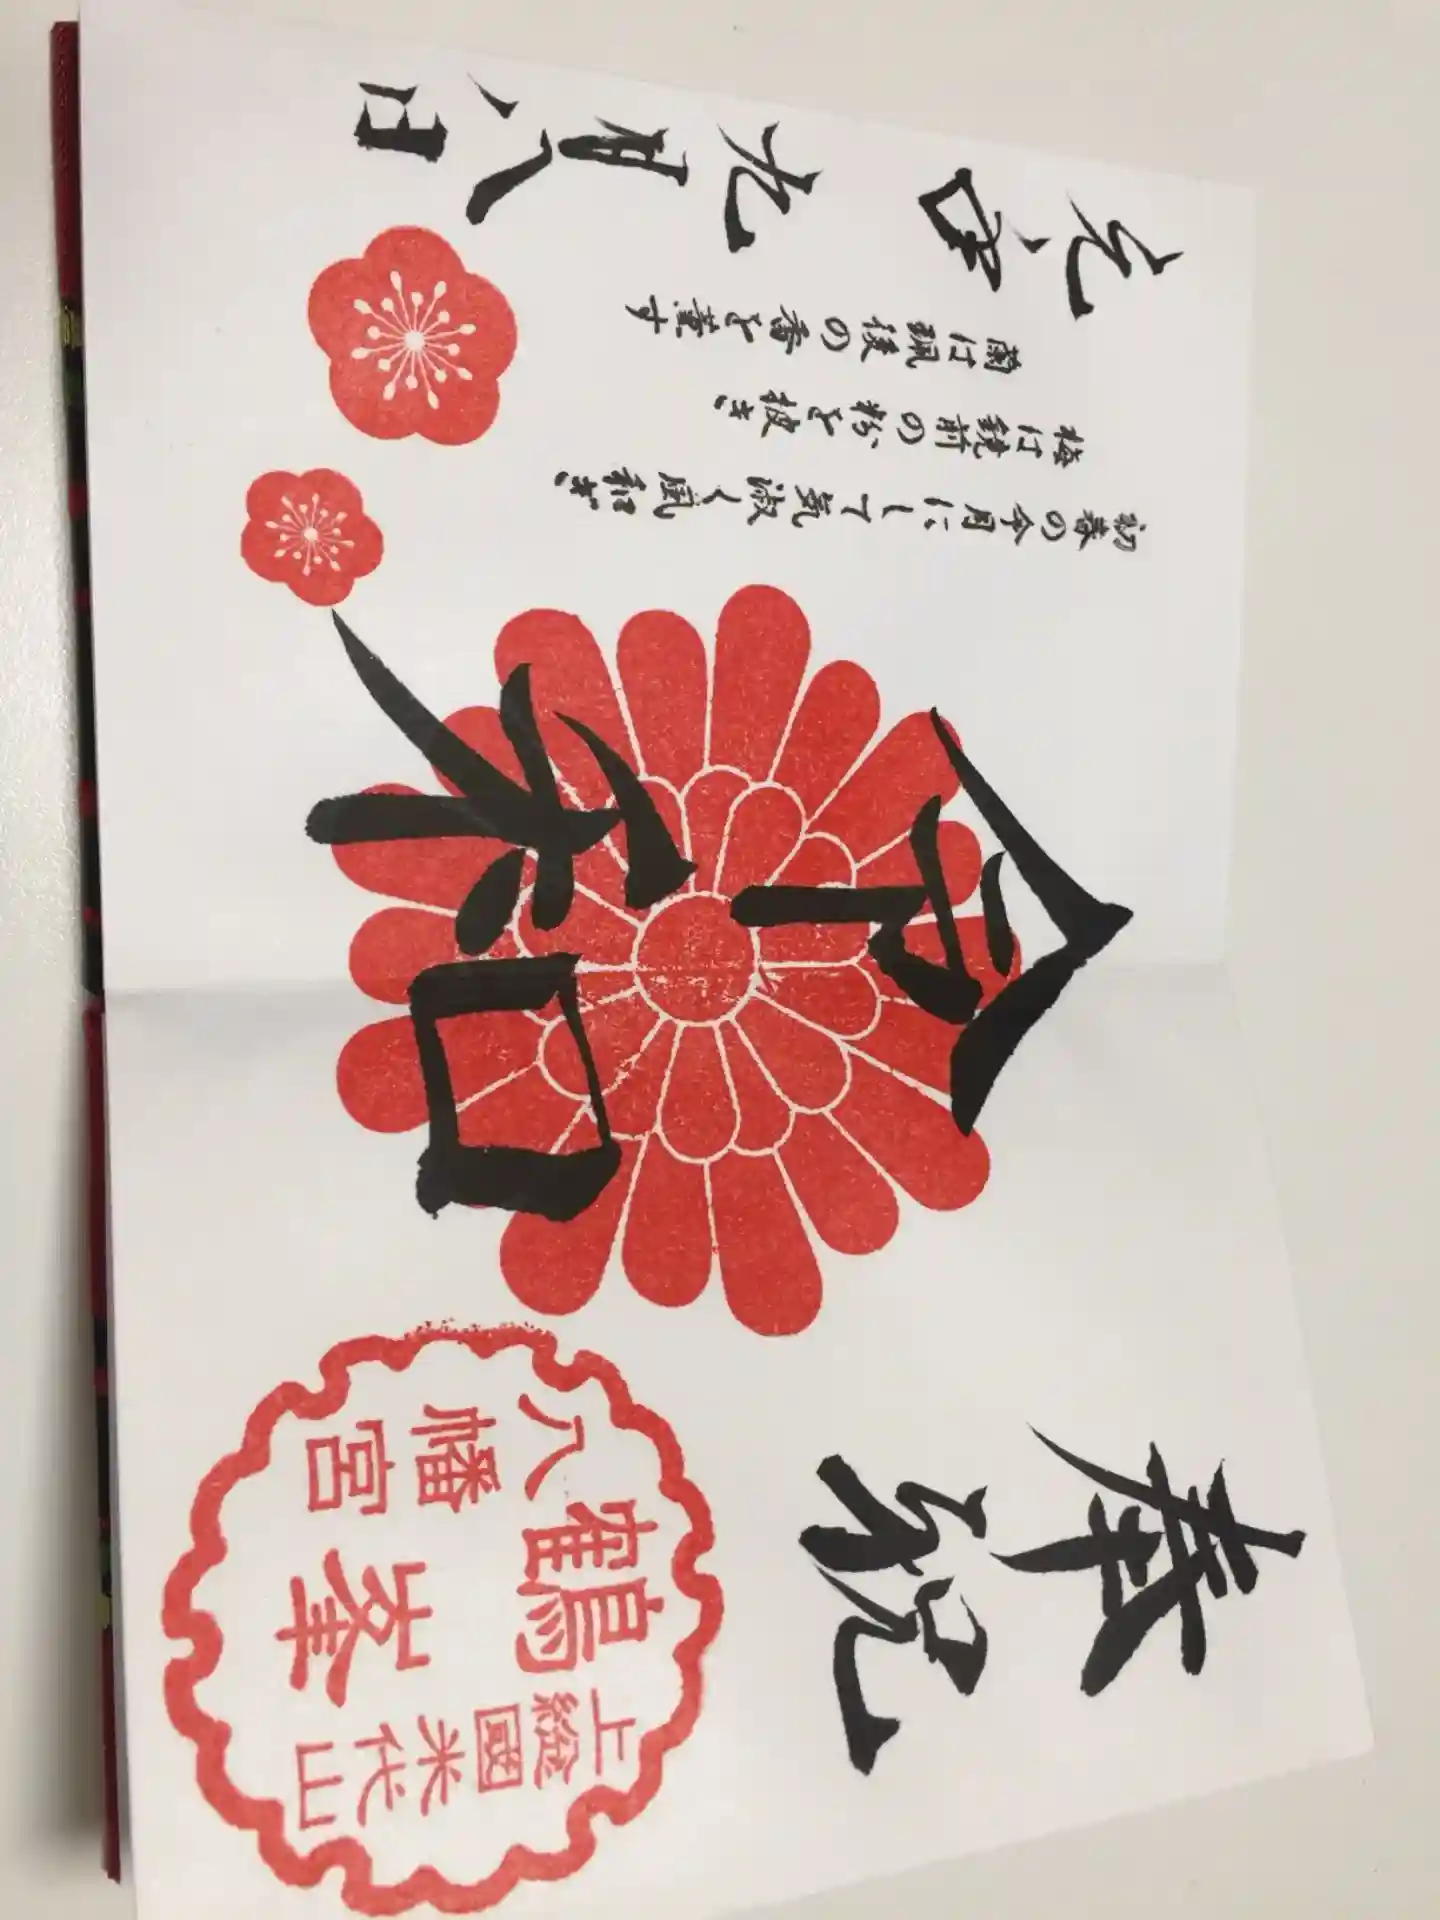 奉祝
上總國米代山
鶴峯
八幡宮
令和
初春の令月にして気淑く風和ぎ
梅は鏡前の粉を披き
蘭は珮後の香を薫す
元年九月八日